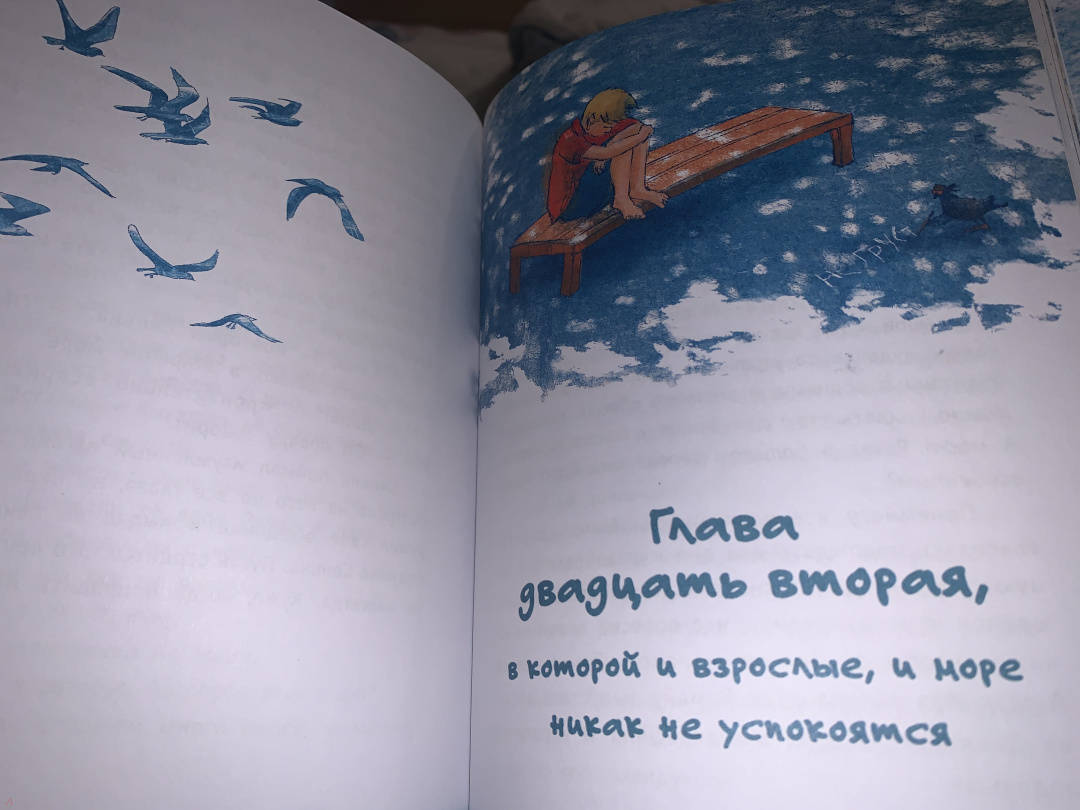 не грусти
Глава
двадцать вторая,
в которой и взрослые, и море
никак не успокоятся